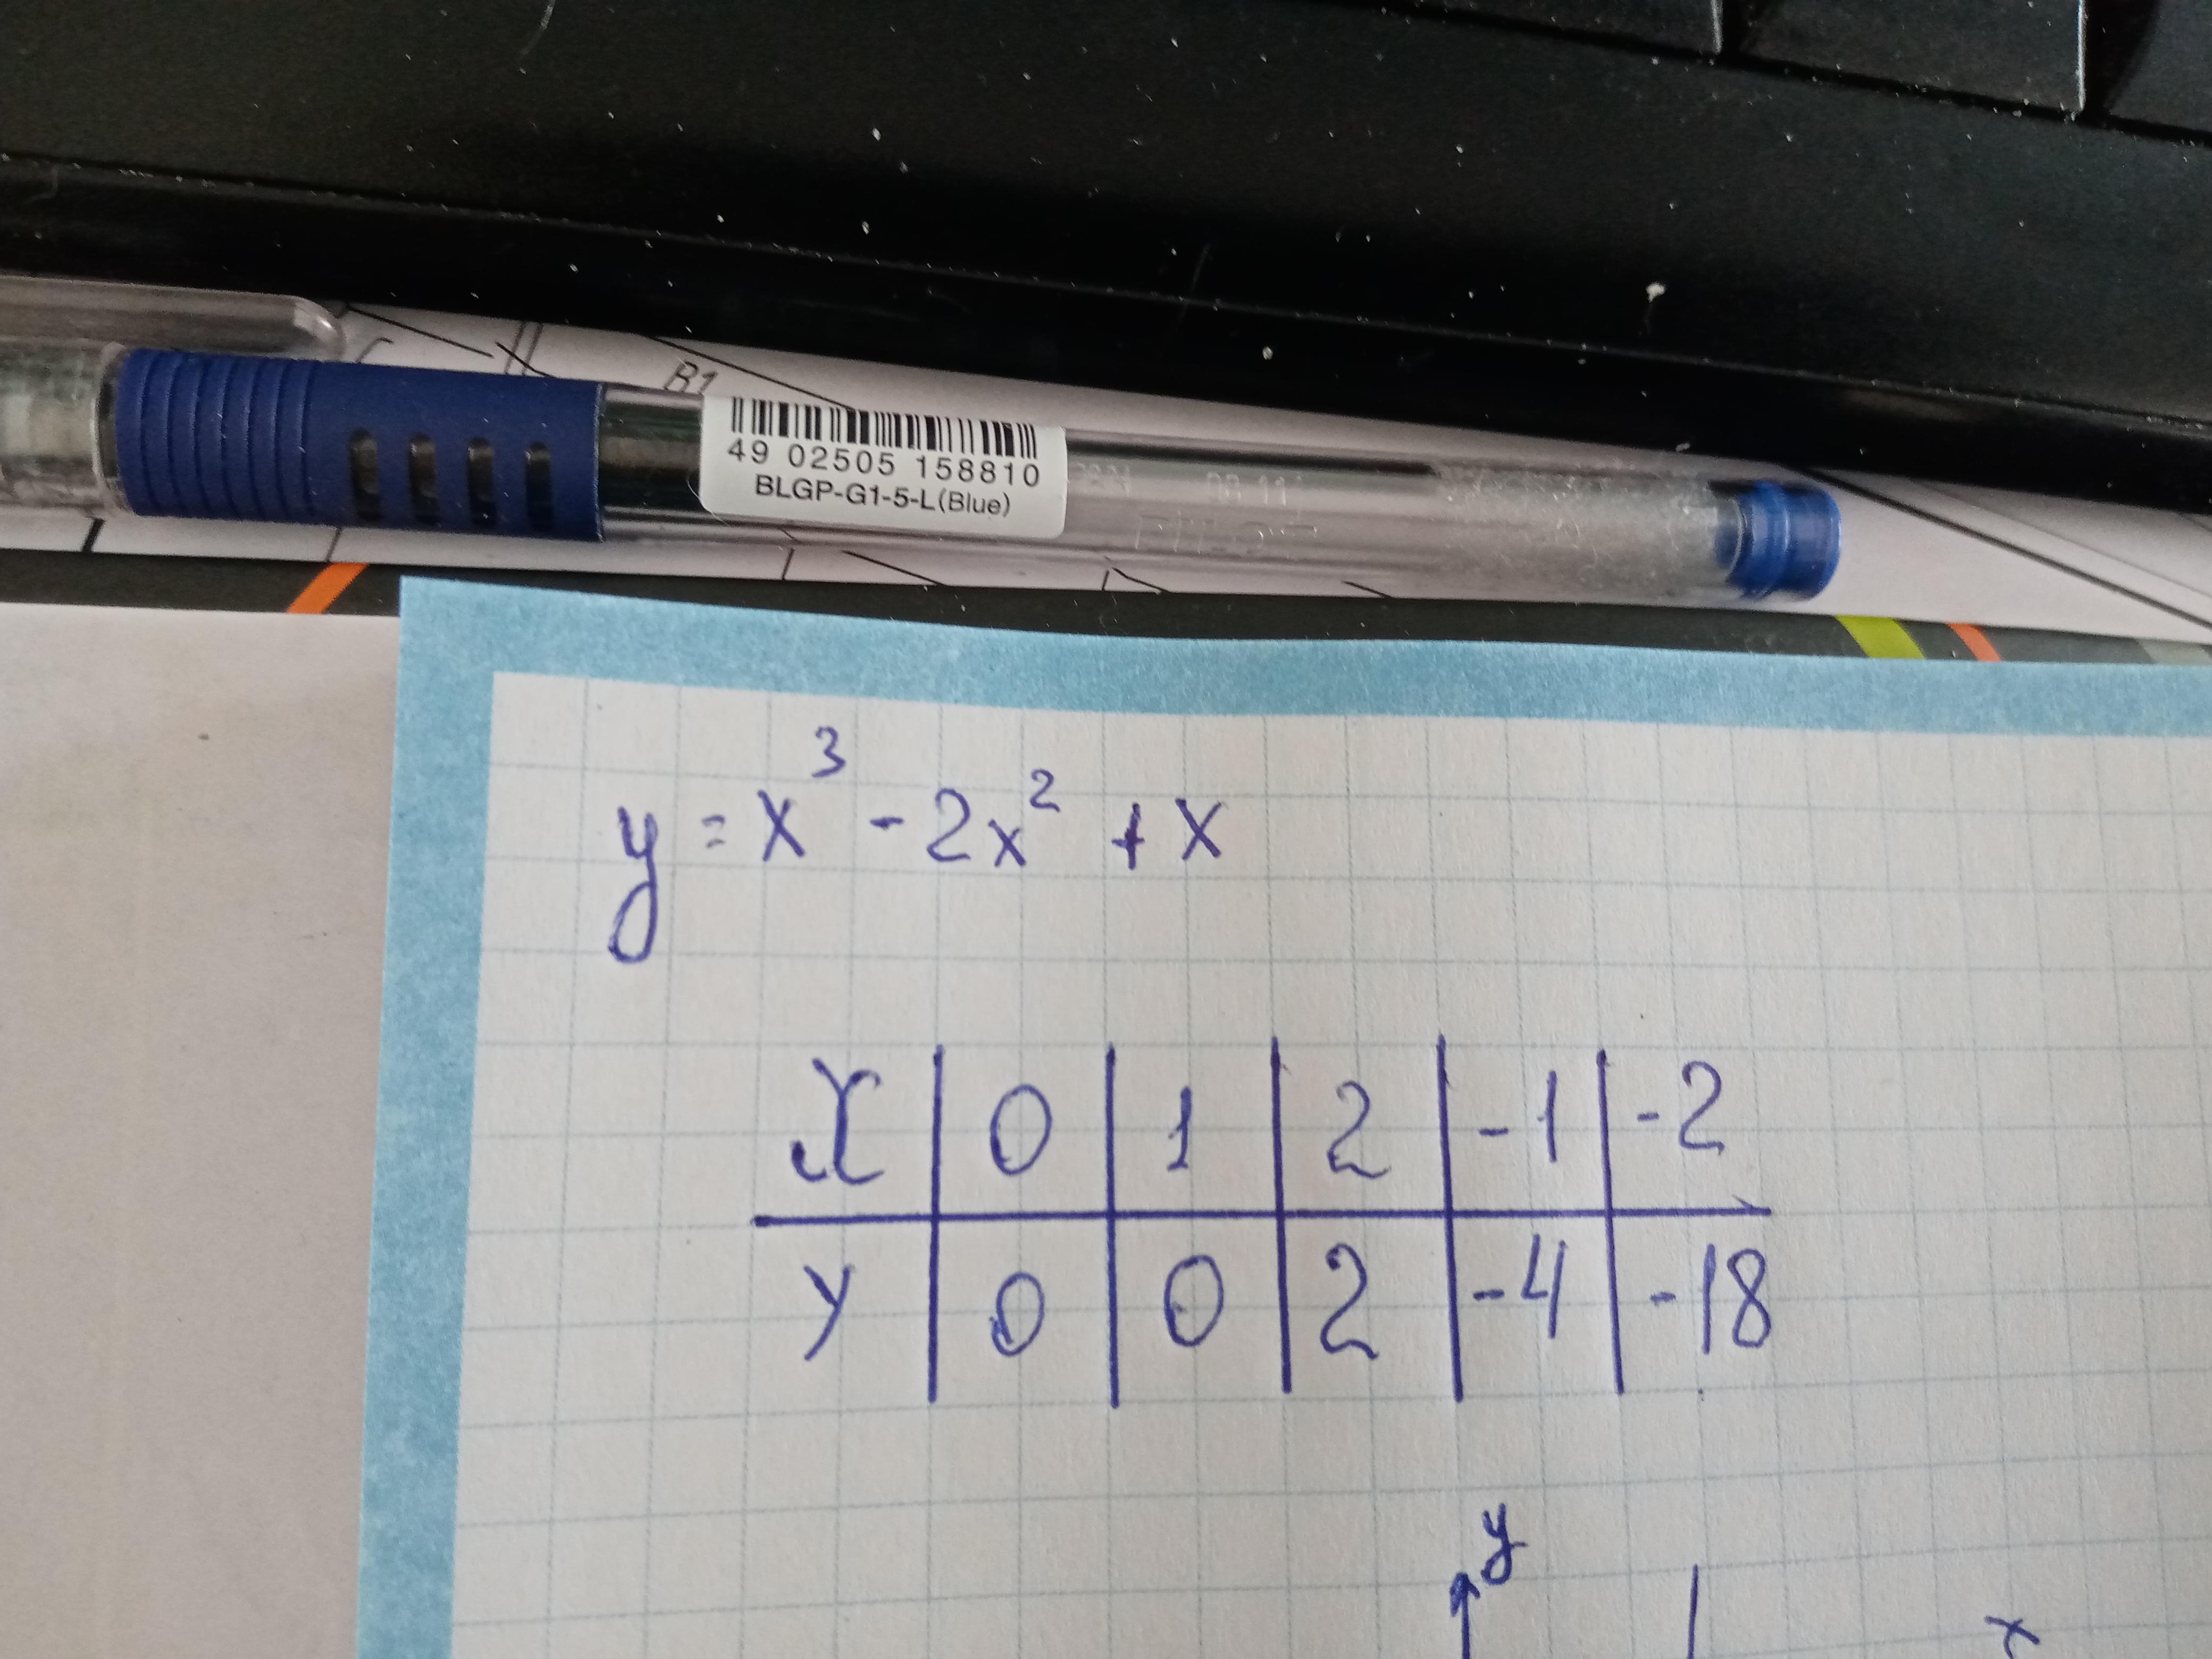 B1
49 02505 158810
BLGP-G1-5-L(Blue)
y = x³ - 2x² + x
X | 0 | 1 | 2 | -1 | -2
y | 0 | 0 | 2 | -4 | -18
y
x